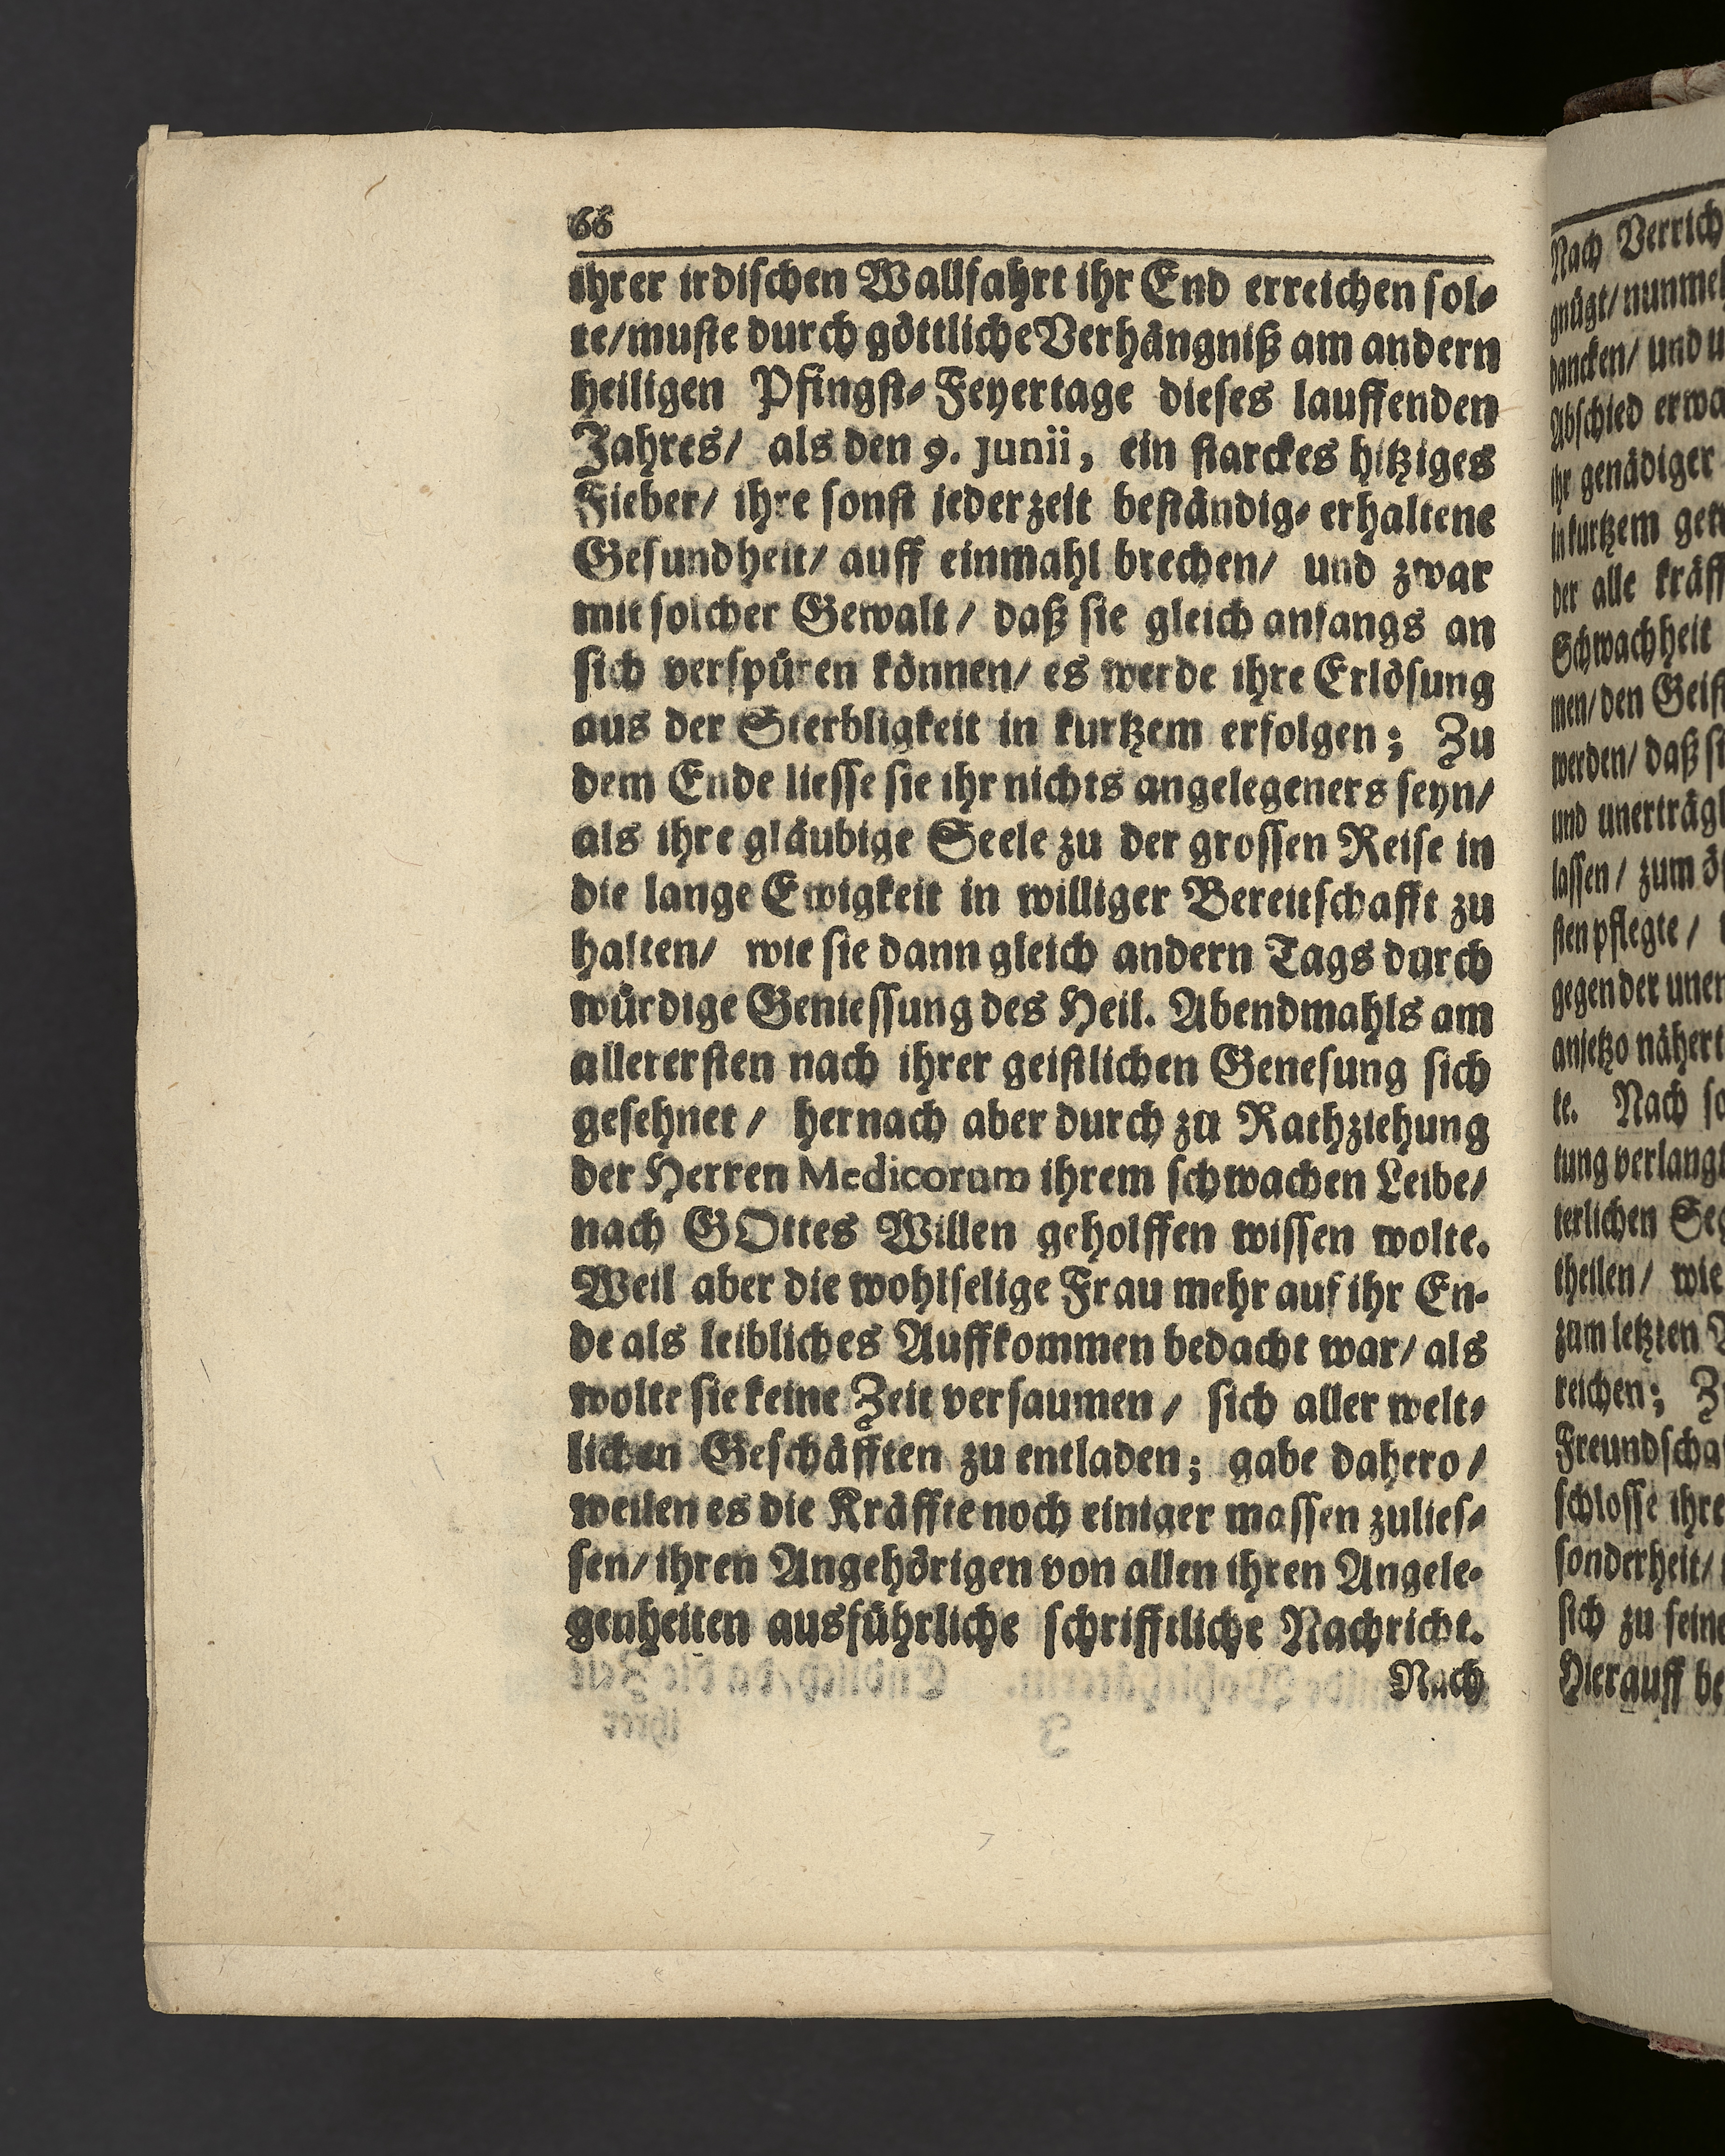 66
ihrer irdischen Wallfahrt ihr End erreichen sol-
te/muste durch göttliche Verhängniß am andern
heiligen Pfingst-Feyertage dieses lauffenden
Jahres/ als den 9. Junii, ein starckes hitziges
Fieber/ ihre sonst jederzeit beständig-erhaltene
Gesundheit/ auff einmahl brechen/ und zwar
mit solcher Gewalt/ daß sie gleich anfangs an
sich verspüren können/ es werde ihre Erlösung
aus der Sterbligkeit in kurtzem erfolgen; Zu
dem Ende liesse sie ihr nichts angelegeners seyn/
als ihre gläubige Seele zu der grossen Reise in
die lange Ewigkeit in williger Bereitschafft zu
halten/ wie sie dann gleich andern Tags durch
würdige Geniessung des Heil. Abendmahls am
allerersten nach ihrer geistlichen Genesung sich
gesehnet/ hernach aber durch zu Rathziehung
der Herren Medicorum ihrem schwachen Leibe/
nach GOttes Willen geholffen wissen wolte.
Weil aber die wohlselige Frau mehr auf ihr En-
de als leibliches Auffkommen bedacht war/ als
wolte sie keine Zeit versaumen/ sich aller welt-
lichen Geschäfften zu entladen; gabe dahero/
weilen es die Kräffte noch einiger massen zulies-
sen/ ihren Angehörigen von allen ihren Angele-
genheiten ausführliche schrifftliche Nachricht.
Nach
Nach Verrich
gnügt/ nunmeh
dancken/ und u
Abschied erwa
ihr genädiger
in kurtzem
der alle kräff
Schwachheit
men/ den Geist
werden/ daß si
und unerträgl
lassen/ zum ö
sten pflegte/
gegen der uner
anjetzo nähert
te. Nach so
tung verlangt
terlichen Seg
theilen/ wie
zum letzten
reichen; Z
Freundscha
schlosse ihre
sonderheit/
sich zu seine
Hierauff be